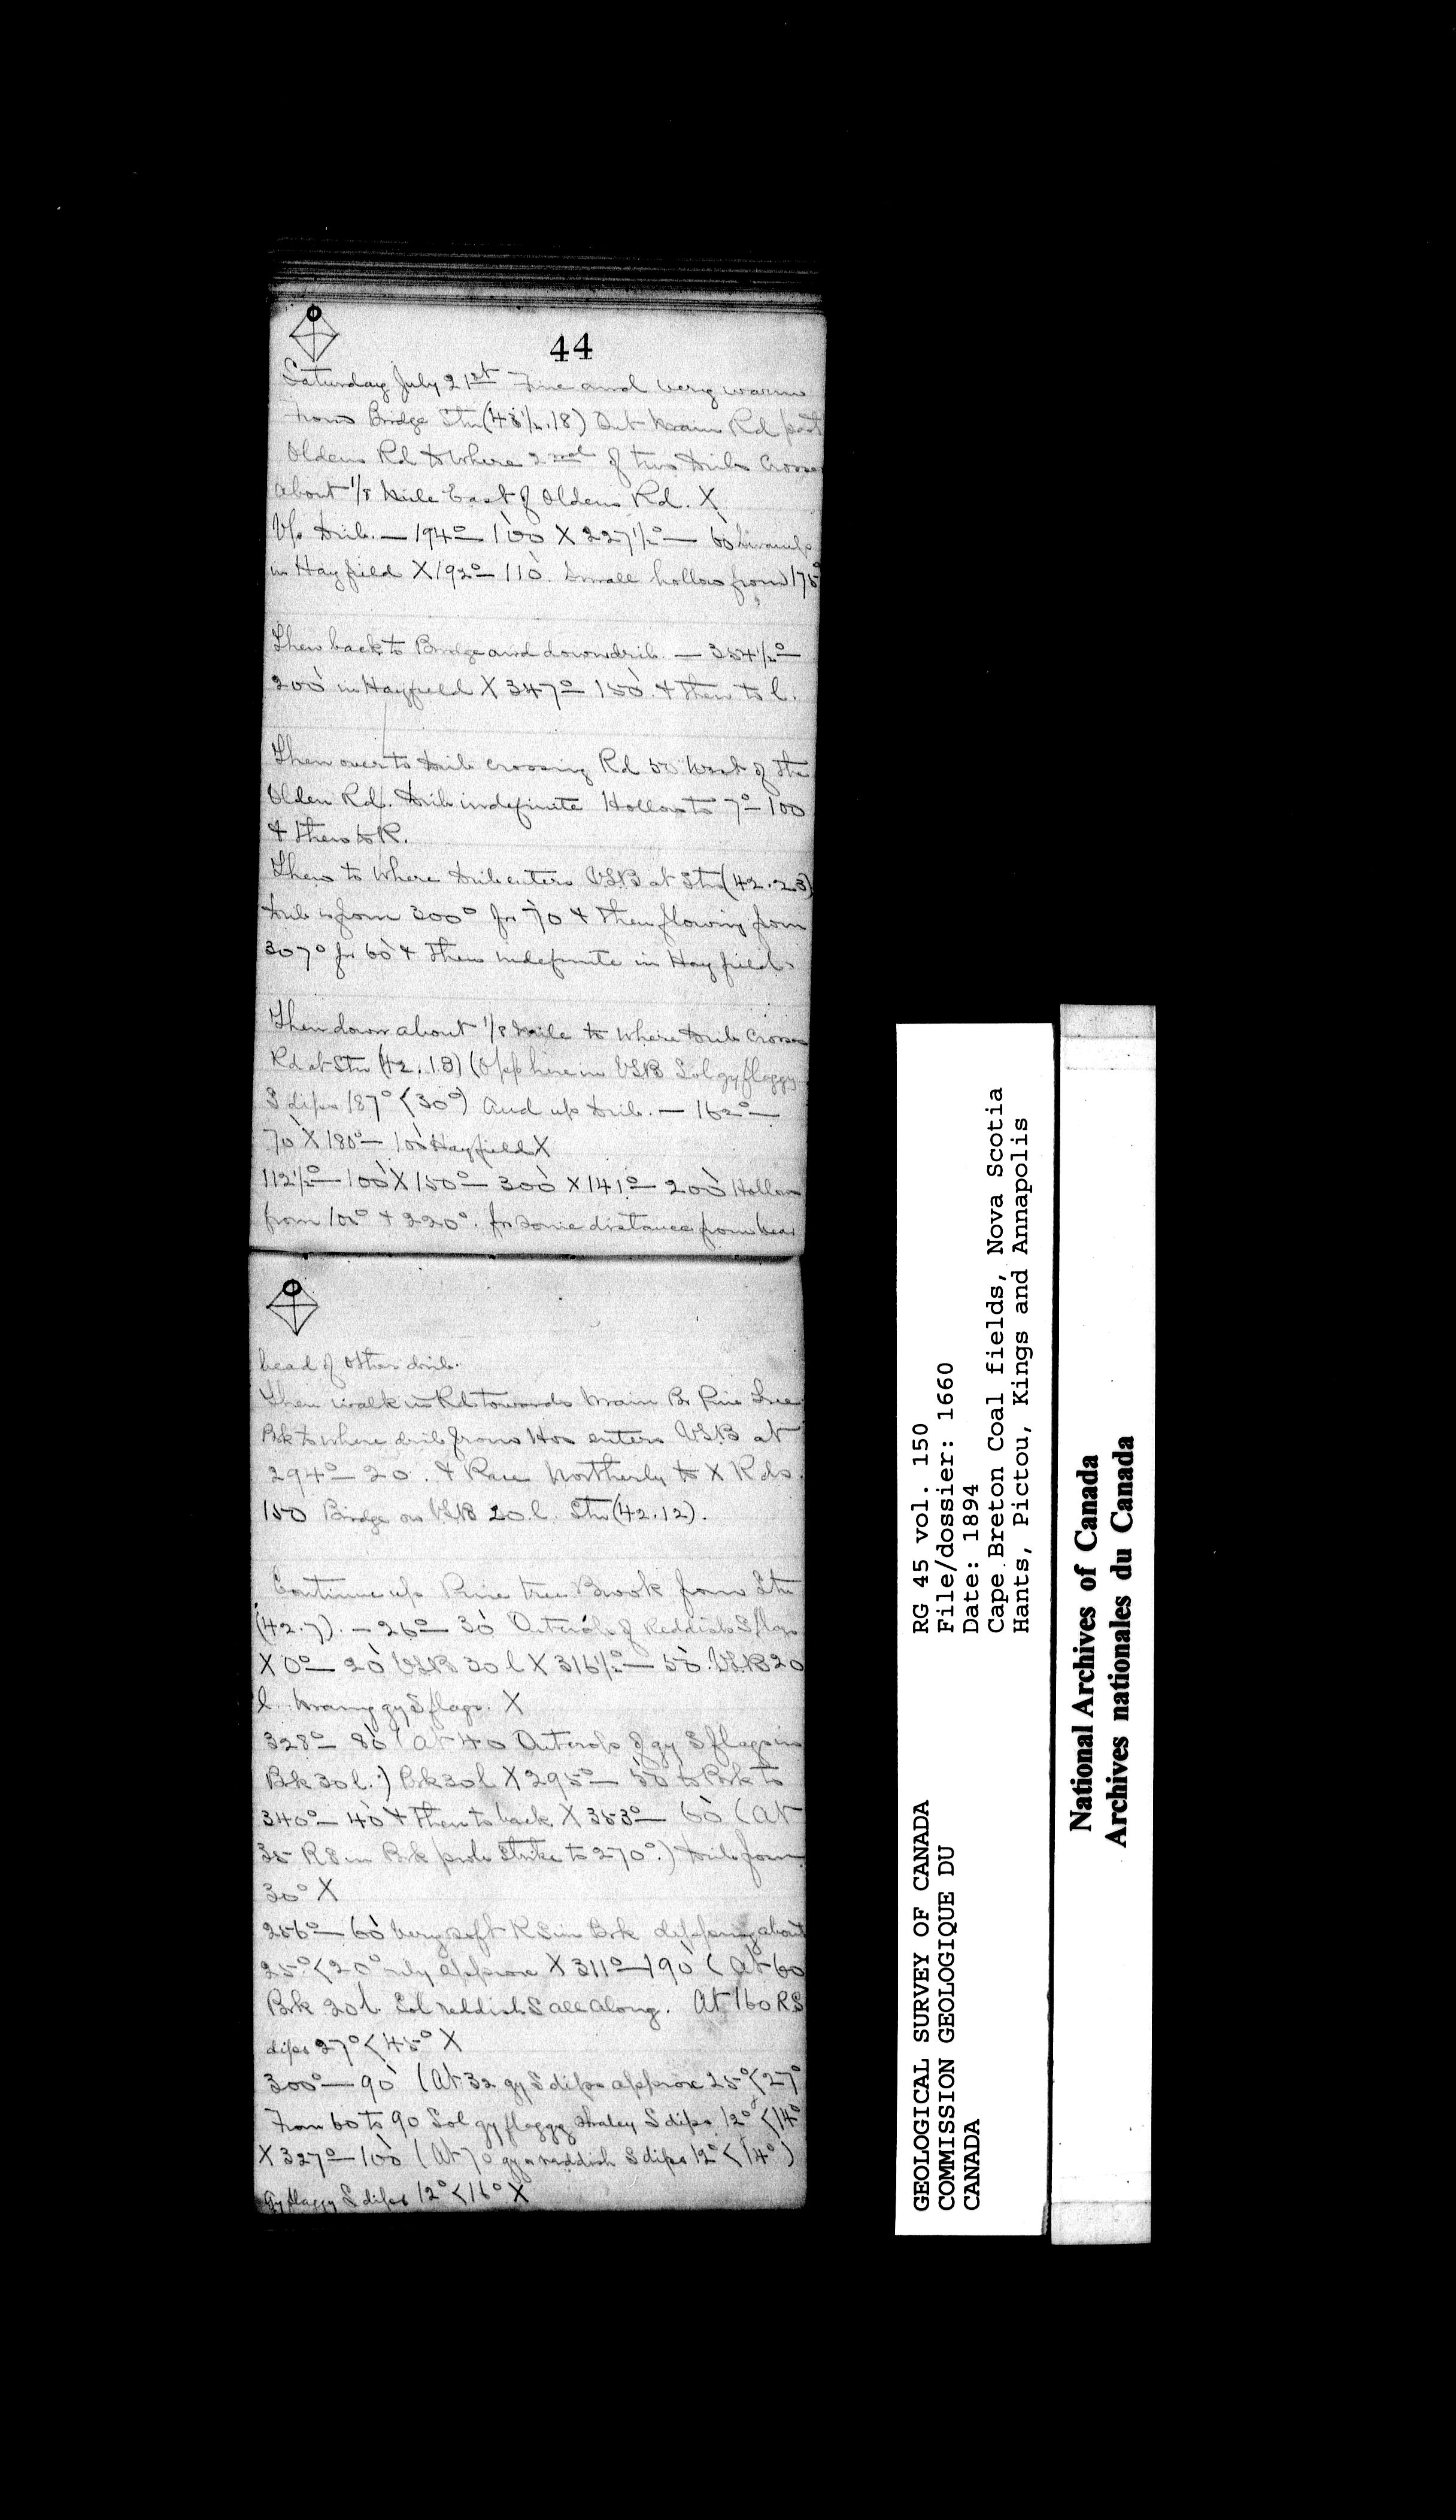 44
Saturday July 21st Fine and very warm
From Bridge Stn (43½.18) Out Main Rd past
Oldens Rd to where 2nd of two Drib crosses
about 1/8 Mile East of Oldens Rd. X
Up Drib. — 194° — 100 X 227½° — 60 Swamp
in Hayfield X 192° — 110. Small hollow from 175°
Then back to Bridge and down drib. — 354½° —
200 in Hayfield X 347° — 150. & then to l.
Then over to Drib crossing Rd 50 West of the
Olden Rd. Drib indefinite Hollow to 7° — 100
& then to R.
Then to where Drib enters VLB at Stn (42.23)
Drib is from 300° for 70 & then flowing from
307° for 60 & then indefinite in Hayfield.
Then down about 1/8 Mile to where Drib crosses
Rd at Stn (42.18) (Opp here in VLB Sol gy flaggy
S dips 187° < 30°) And up Drib. — 162° —
70 X 180° — 100 Hayfield X
112½° — 100 X 150° — 300 X 141° — 200 Hollow
from 100° & 220°. for some distance from
head of other drib.
Then walk in Rd towards Main Br Pine Tree
Brk to where drib from enters VLB at
294° — 20. & Northerly to X Rds.
150 Bridge on VLB 20 l. Stn (42.12).
Continue up Pine tree Brook from Stn
(42.7). — 26° — 30 Outcrop of Reddish S flags
X 0° — 20 VLB 30 l X 316½° — 50. VLB 20
l. Many gy S flags. X
328° — 80 (At 40 Outcrop of gy S flags in
Brk 30 l.) Brk 30 l X 295° — 50 to Brk to
340° — 40 & then to back X 353° — 60 (At
35 RS in Brk prob strike to 270°.) Drib from
30° X
256° — 60 Very soft RS in Brk dipping about
25° < 20° only approx X 311° — 190 (At 60
Brk 20 l. Sol reddish S all along. At 160 RS
dips 27° < 45° X
300° — 90 (At 32 gy S dips approx 25° < 27°
From 60 to 90 Sol gy flaggy shaley S dips 12° < 14°
X 327° — 100 (At 70 gy & reddish S dips 12° < 14°)
Gy flaggy S dips 12° < 16° X
GEOLOGICAL SURVEY OF CANADA
COMMISSION GEOLOGIQUE DU
CANADA
RG 45 vol. 150
File/dossier: 1660
Date: 1894
Cape Breton Coal fields, Nova Scotia
Hants, Pictou, Kings and Annapolis
National Archives of Canada
Archives nationales du Canada